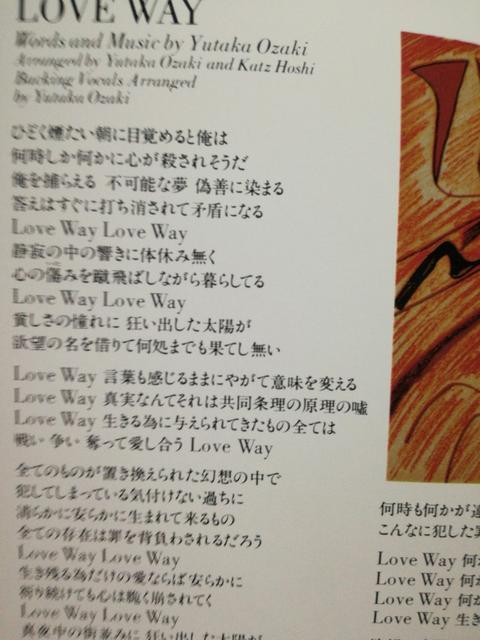 LOVE WAY
Words and Music by Yutaka Ozaki
Arranged by Yutaka Ozaki and Katz Hoshi
Backing Vocals Arranged
by Yutaka Ozaki
ひどく煙たい朝に目覚めると俺は
何時しか何かに心が殺されそうだ
俺を捕らえる 不可能な夢 偽善に染まる
答えはすぐに打ち消されて矛盾になる
Love Way Love Way
静寂の中の響きに体休み無く
心の傷みを蹴飛ばしながら暮らしてる
Love Way Love Way
貧しさの憧れに 狂い出した太陽が
欲望の名を借りて何処までも果てし無い
Love Way 言葉も感じるままにやがて意味を変える
Love Way 真実なんてそれは共同条理の原理の嘘
Love Way 生きる為に与えられてきたもの全ては
戦い 争い 奪って愛し合う Love Way
全てのものが置き換えられた幻想の中で
犯してしまっている気付けない過ちに
清らかに安らかに生まれて来るもの
全ての存在は罪を背負わされるだろう
Love Way Love Way
生き残る為だけの愛ならば安らかに
祈り続けても心は脆く崩されてく
Love Way Love Way
真夜中の街並みに 狂い出した太陽が
何時も何かが
こんなに犯した
Love Way 何
Love Way 何
Love Way 何
Love Way 生き